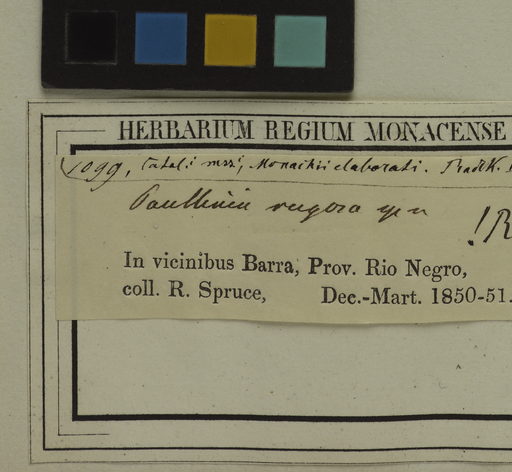 HERBARIUM REGIUM MONACENSE
1099, Catal: mss, Monachii elaborati. Radlk.
Paullinia rugosa
!R
In vicinibus Barra, Prov. Rio Negro,
coll. R. Spruce, Dec.-Mart. 1850-51.